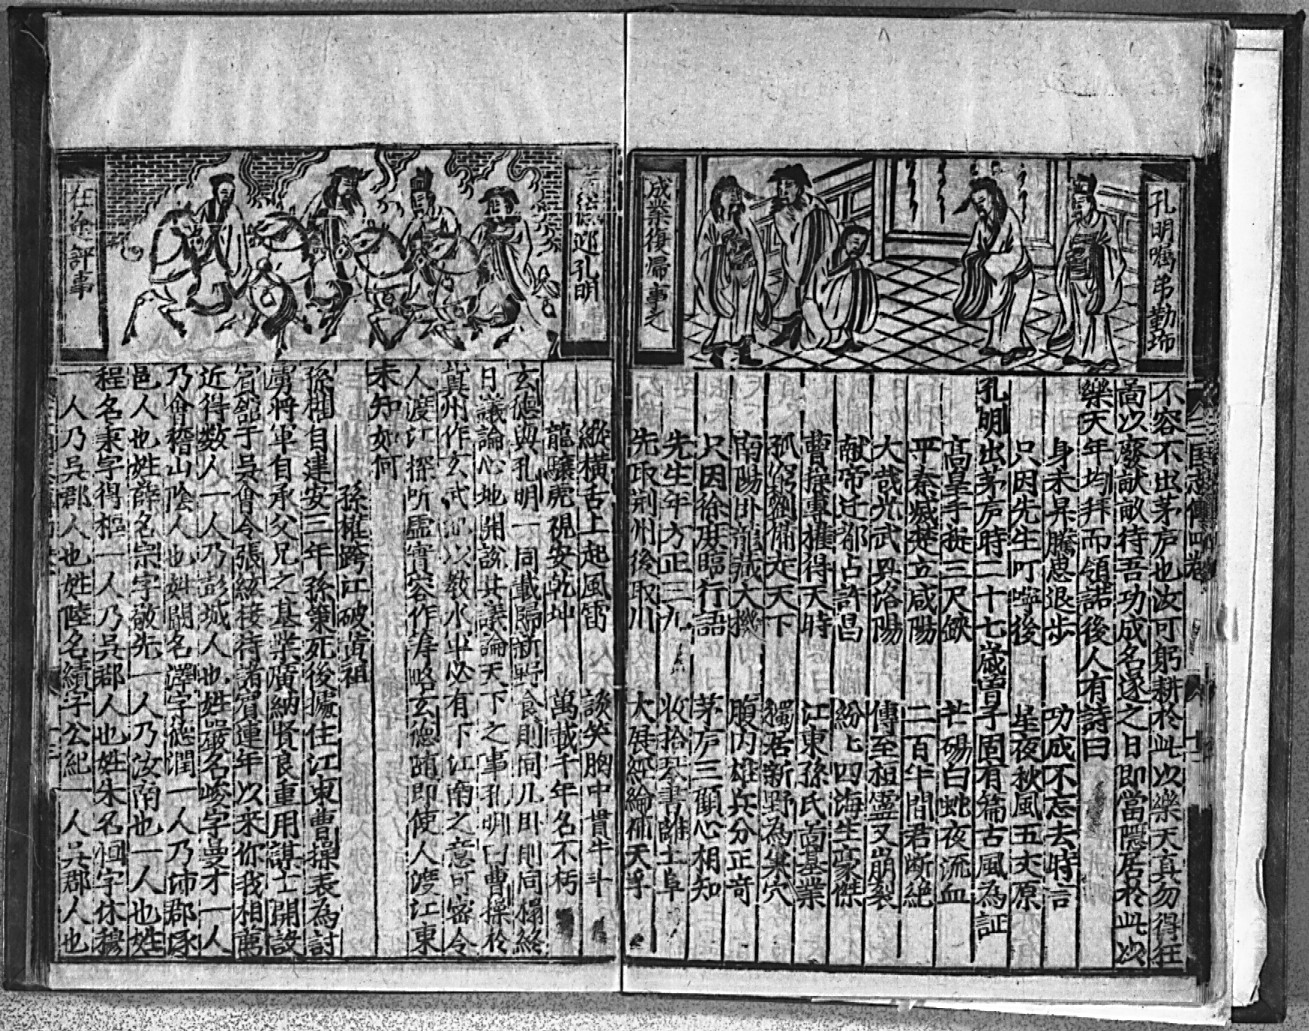 孔明囑弟勤埽
成業復㷌事之
不容不出茅庐也汝可躬耕於此以樂天真勿得狂
啚以廢畎畝待吾功成名遂之日即當隱居於此以
樂天年均拜而領諾後人有詩曰
身未昇騰思退步 功成不忘去時言
只因先生叮嚀後 星夜秋風五丈原
孔明出茅庐時二十七歲曾子固有篇古風為証
高皇手提三尺 芒碭白蛇夜流血
平秦滅楚立咸陽 二百年間君断絶
大哉光武興洛陽 傳至桓灵又崩裂
献帝迁都占許昌 紛々四海生豪傑
曹操專權得天時 江東孫氏啚基業
孤窮劉備走天下 獨居新野為巢穴
南陽卧龍藏大機 腹内雄兵分正奇
只因徐庶臨行語 茅庐三顧心相知
先生年方正三九 收拾琴書離土阜
先取荆州後取川 大展經綸補天手
迎孔明
在途評事
縱橫舌上起風雷 談笑胸中貫牛斗
龍驤虎視安乾坤 萬載千年名不朽
玄德與孔明一同載歸新野食則同几卧則同榻終
日議論心地開談其議論天下之事孔明曰曹操於
冀州作玄武池以教水軍必有下江南之意可密令
人渡江探听虛實容作籌略玄德随即使人渡江東
未知如何
孫權跨江破黄祖
孫權自建安三年孫策死後據住江東曹操表為討
虜將軍自承父兄之基業廣納賢良重用謀士開設
賓舘于吳會令張紘接待諸賓連年以來你我相薦
近得数人一人乃彭城人也姓嚴名峻字曼才一人
乃會稽山陰人也姓闞名澤字德潤一人乃沛郡
邑人也姓薛名宗字敬先一人乃汝陽也一人也姓
程名秉字得樞一人乃吳郡人也姓朱名桓字休穆
一人乃吴郡人也姓陸名績字公紀一人吳郡人也